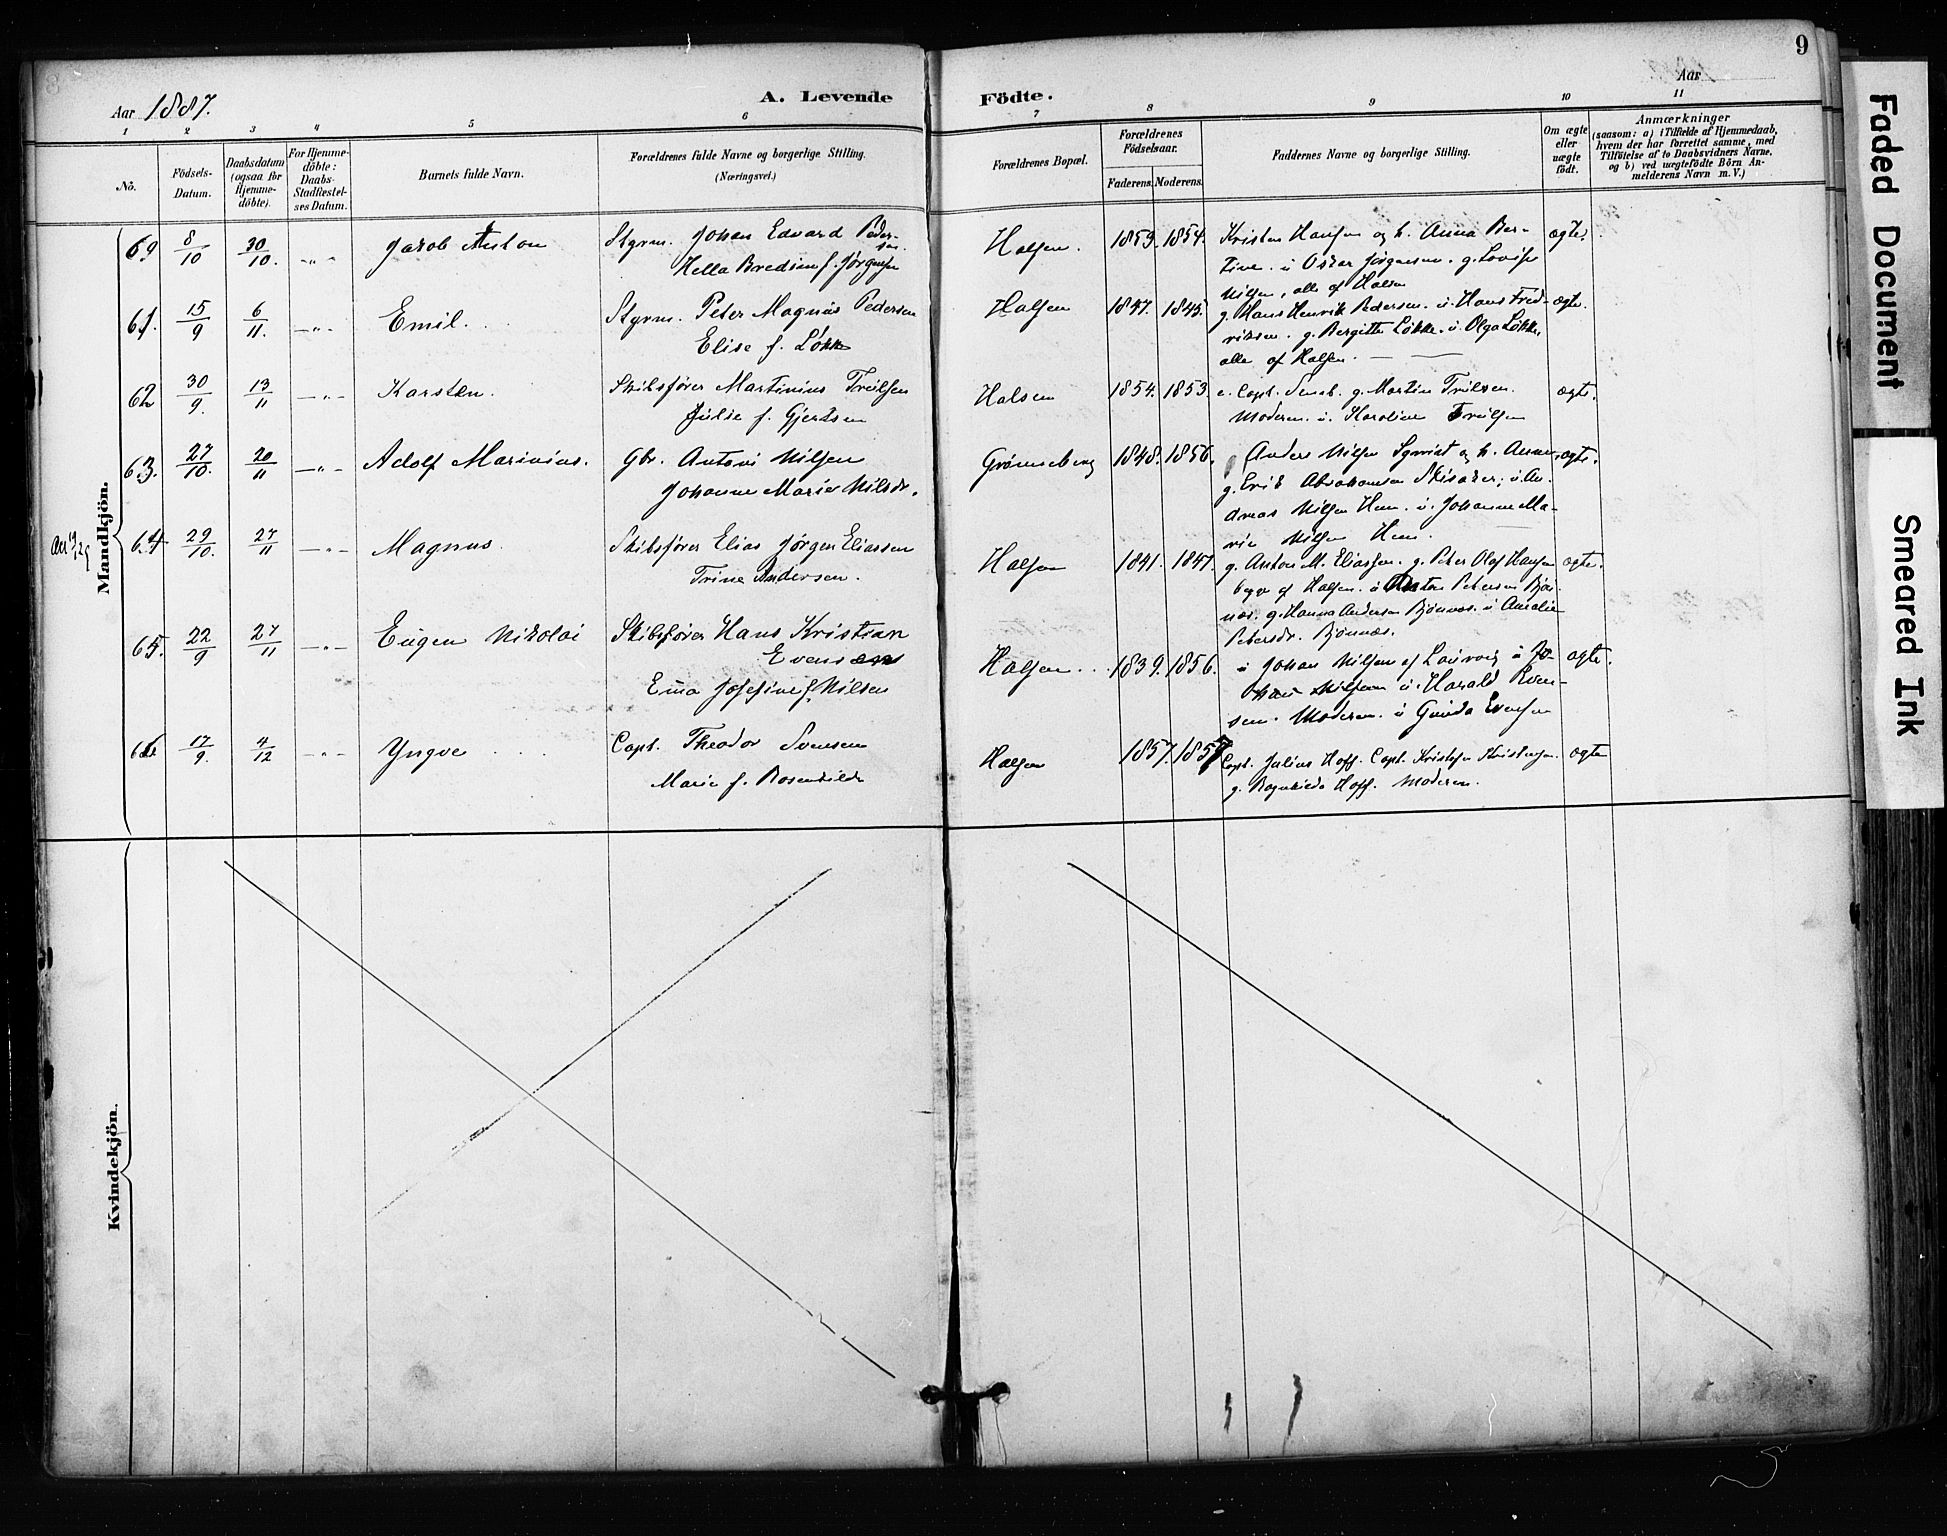 9
Aar 1887.
A. Levende Födte.
Aar
1 2 3 4 5 6 7 8 9 10 11
No.
Födsels-
Datum.
Daabsdatum
(ogsaa for
Hjemme-
döbte).
For Hjemme-
döbte:
Daabs-
Stadfæstel-
ses Datum.
Barnets fulde Navn.
Forældrenes fulde Navne og borgerlige Stilling.
(Næringsvei.)
Forældrenes Bopæl.
Forældrenes
Födselsaar.
Faderens. Moderens.
Faddernes Navne og borgerlige Stilling.
Om ægte
eller
uægte
födt.
Anmærkninger
(saasom: a) i Tilfælde af Hjemmedaab,
hvem der har forrettet samme, med
Tilföielse af to Daabsvidners Navne,
og b) ved uægtefödte Börn An-
melderens Navn m. V.)
Mandkjön.
60 8/10 30/10. -"- Jakob Anton
Styrm. Johan Edvard Peder-
sen
Hella Bredsine f. Jørgensen
Halsen. 1853. 1854.
Kristen Hansen og h. Anna Ber-
tine. u Oskar Jørgensen. g. Lovise
Nilsen, alle af Halsen
ægte.
61. 15/9 6/11. -"- Emil.
Styrm. Peter Magnus Pedersen
Elise f. Løkke
Halsen 1847. 1845.
g. Hans Henrik Pedersen. u. Hans Fred-
riksen. g. Bergitte Løkke. u. Olga Løkke,
alle af Halsen.
ægte.
62 30/9. 13/11 -"- Karsten.
Skibsfører Martinius Treidsen
Julie f. Gjertsen
Halsen 1854. 1853.
Moderen. u. Karoline
ægte.
63. 27/10. 20/11 -"- Adolf Marinius.
Gbr. Anton Nilsen
Johanne Marie Nilsdr.
Grønneberg 1848. 1856.
Anders Nilsen og h. Anne.
g. Erik Abrahamsen Skisaker; u. An-
dreas Nilsen Hem. u. Johanne Ma-
rie Nilsen Hem.
ægte.
64 29/10. 27/11 -"- Magnus.
Skibsfører Elias Jørgen Eliassen
Trine Andersen.
Halsen 1841. 1847.
g. Anton M. Eliassen. g. Peter Olaf Hansen
begge af Halsen. u Anton Petersen Bjøn-
nes. g. Hanna Andersen Bjønnes. u Amalie
Petersdr. Bjønnes.
ægte.
65. 22/9 27/11 -"- Eugen Nikolai
Skibsfører Hans Kristian
Evensen
Ema Josefine f. Nilsen
Halsen. 1839. 1856.
u Johan Nilsen af Laurvig u Jo-
han Nilsen u. Harald Even-
sen. Moderen. u Gunda Evensen
ægte.
66 17/9. 4/12 -"- Yngve
Capt. Theodor Svensen
Marie f. Rosenkilde
Halsen 1857. 1857
Capt. Julius Hoff. Capt. Kristofer Kristensen.
g. Ragnhilda Hoff. Moderen.
ægte
Kvindekjön.
Faded Document
Smeared Ink